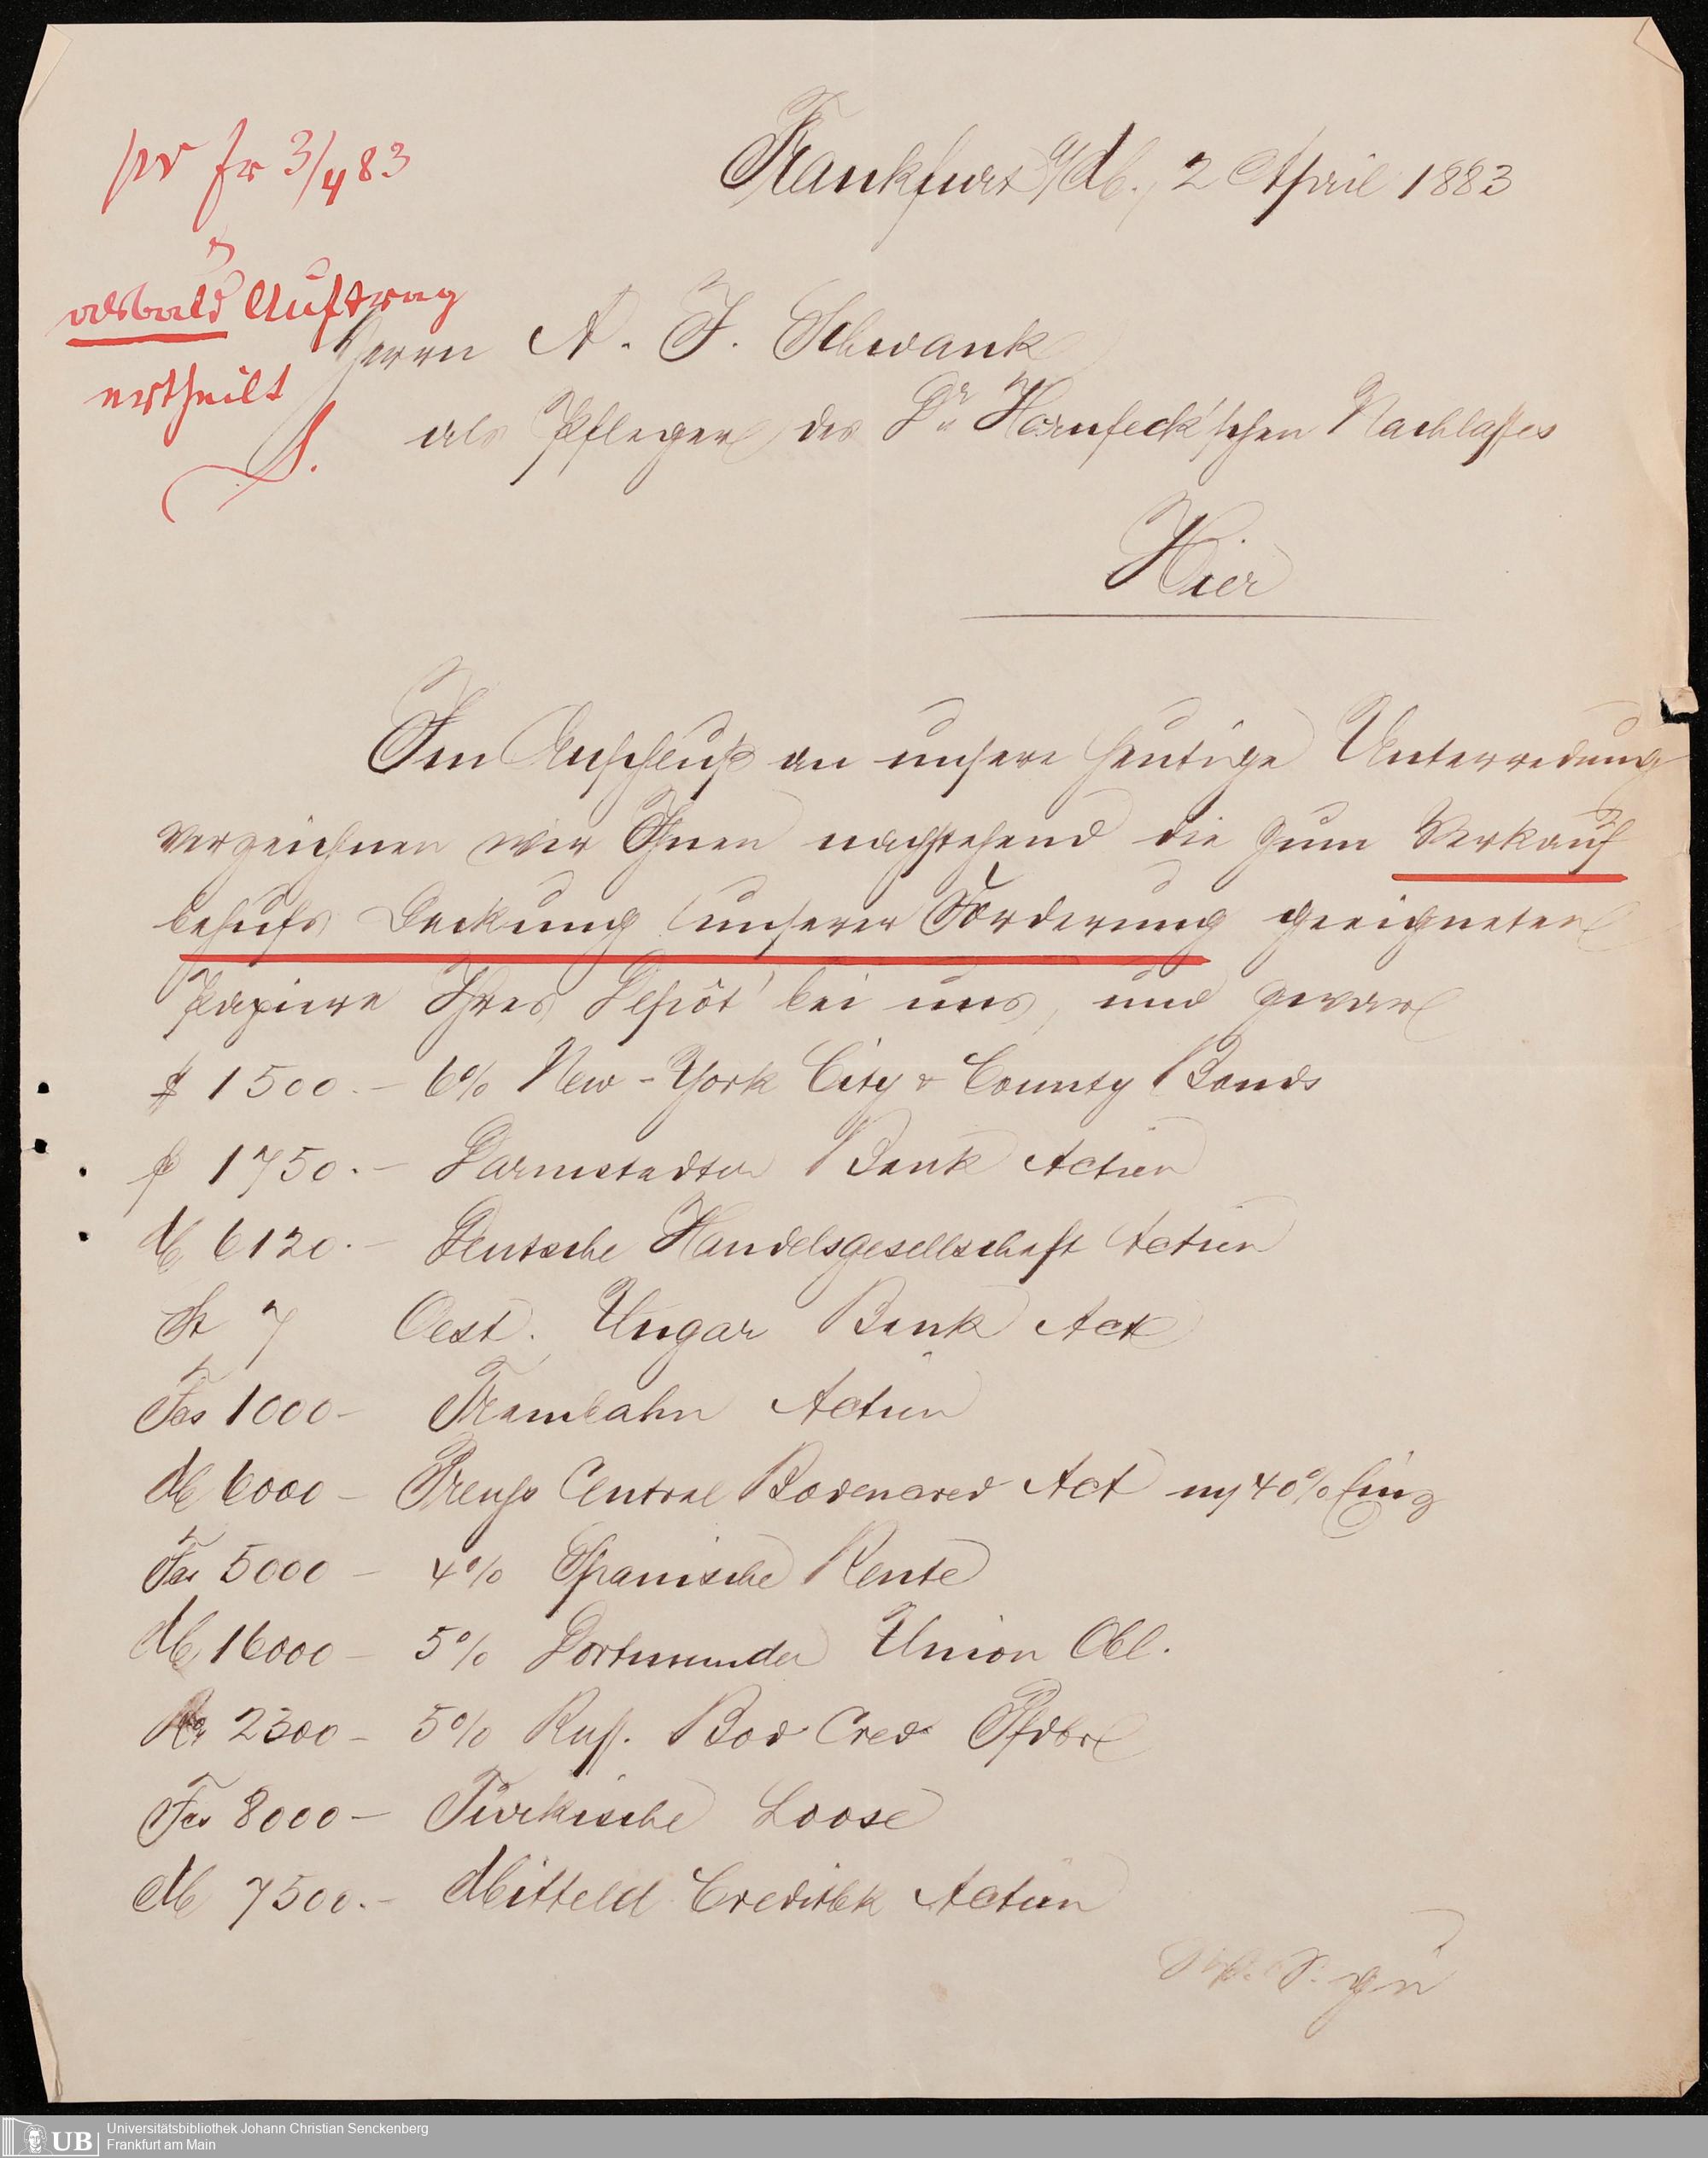 pr fr 3/4 83
alsbald Auftrag
ertheilt
S.
Frankfurt a/M., 2 April 1883
Herrn A. F. Schwank
als Pfleger des Dr Hornfeck'schen Nachlasses
Hier
Im Anschluß an unsere heutige Unterredung
verzeichnen wir Ihnen nachstehend die zum Verkauf
behufs Deckung unserer Forderung geeigneten
Papiere Ihres Depôt bei uns, und zwar
$ 1500.- 6% New-York City & County Bonds
f 1750.- Darmstadter Bank Actien
M 6120.- Deutsche Handelsgesellschaft Actien
St 7 Oest. Ungar Bank Act
Fcs 1000- Trambahn Actien
M 6000- Preuss Central Bodencred Act m/ 40% Einz
Fcs 5000- 4% Spanische Rente
M 16000- 5% Dortmunder Union Obl.
Ro 2300- 5% Russ. Bod Cred Pfdbr
Fcs 8000- Türkische Loose
M 7500.- Mitteld Creditbk Actien